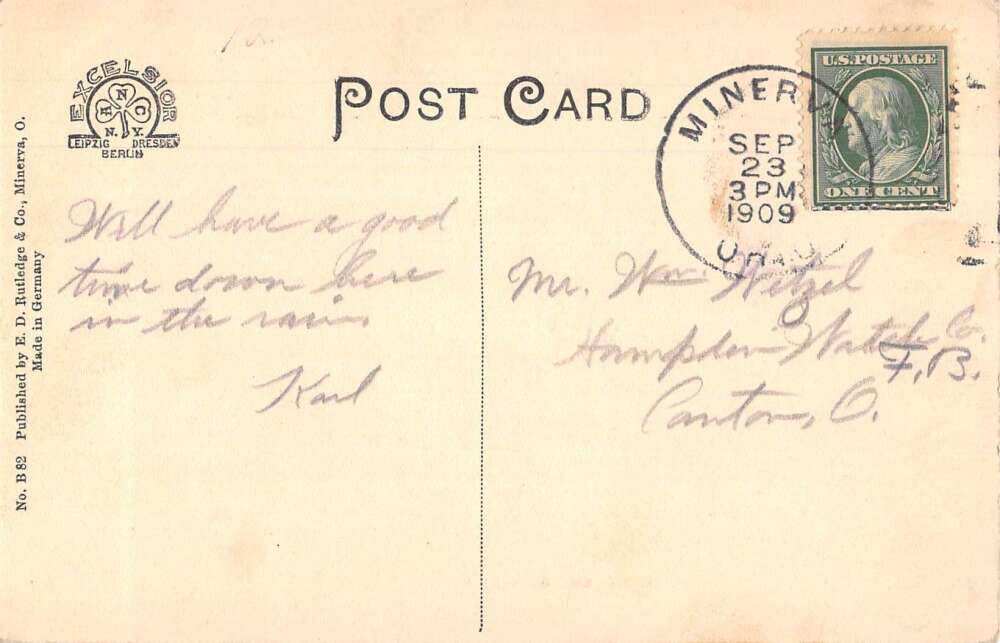 EXCELSIOR
N.Y.
LEIPZIG DRESDEN
BERLIN
POST CARD
MINERVA
SEP
23
3 PM
1909
OHIO
U.S. POSTAGE
ONE CENT
No. B 82 Published by E. D. Rutledge & Co., Minerva, O.
Made in Germany
Will have a good
time down here
in the rain
Karl
Mr. Wm. Wetzel
Hampden Watch Co.
F. B.
Canton, O.